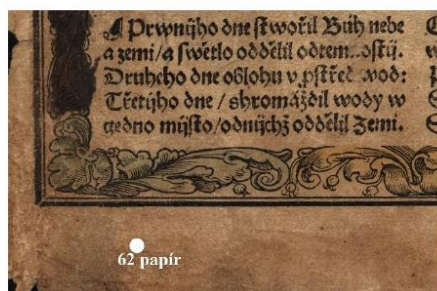 ¶ Prwnijho dne stwořil Bůh nebe
a zemi/a swětlo oddělil odtem..ostij.
Druheho dne oblohu v pſtřed wod:
Třetijho dne / shromáždil wody w
gedno mijsto/odnijchž oddělil Zemi.
62 papír